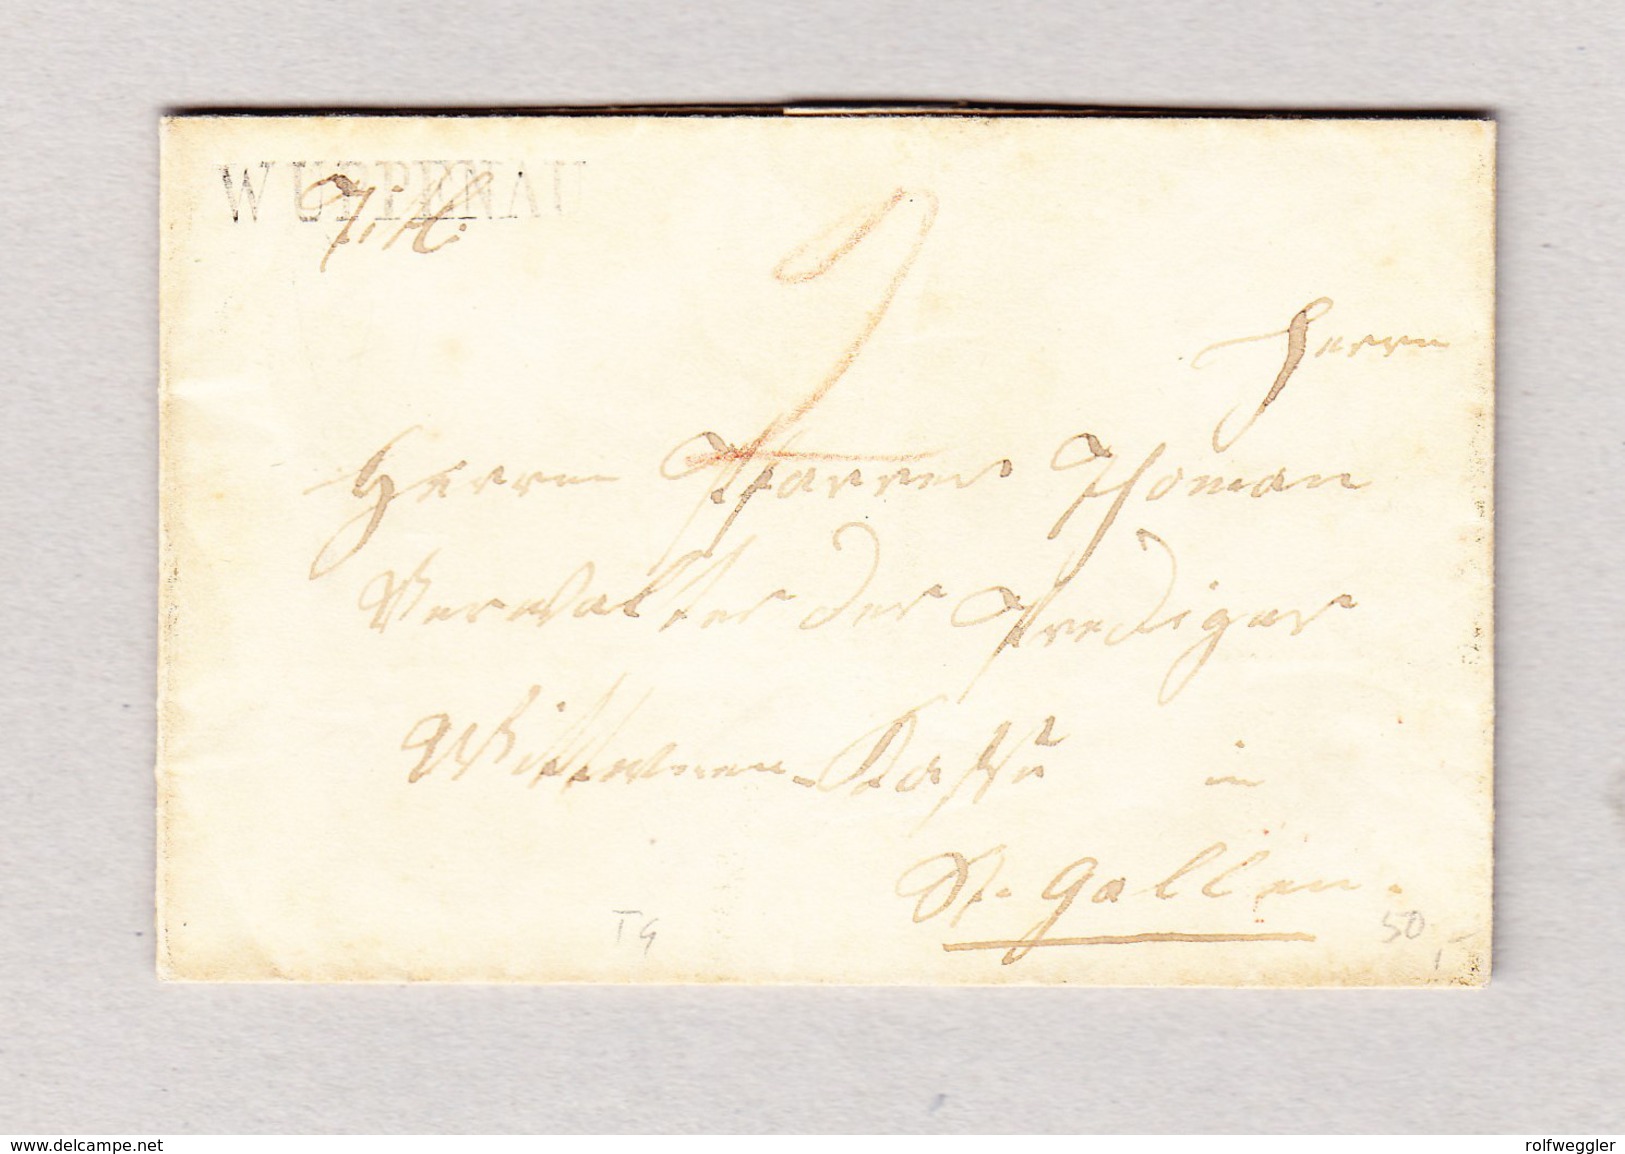 WUPPENAU
Herrn
Herrn Pfarrer Thoman
Verwalter der Prediger
Wittwen-Kasse in
St. Gallen.
TG
50,-
www.delcampe.net
rolfweggler